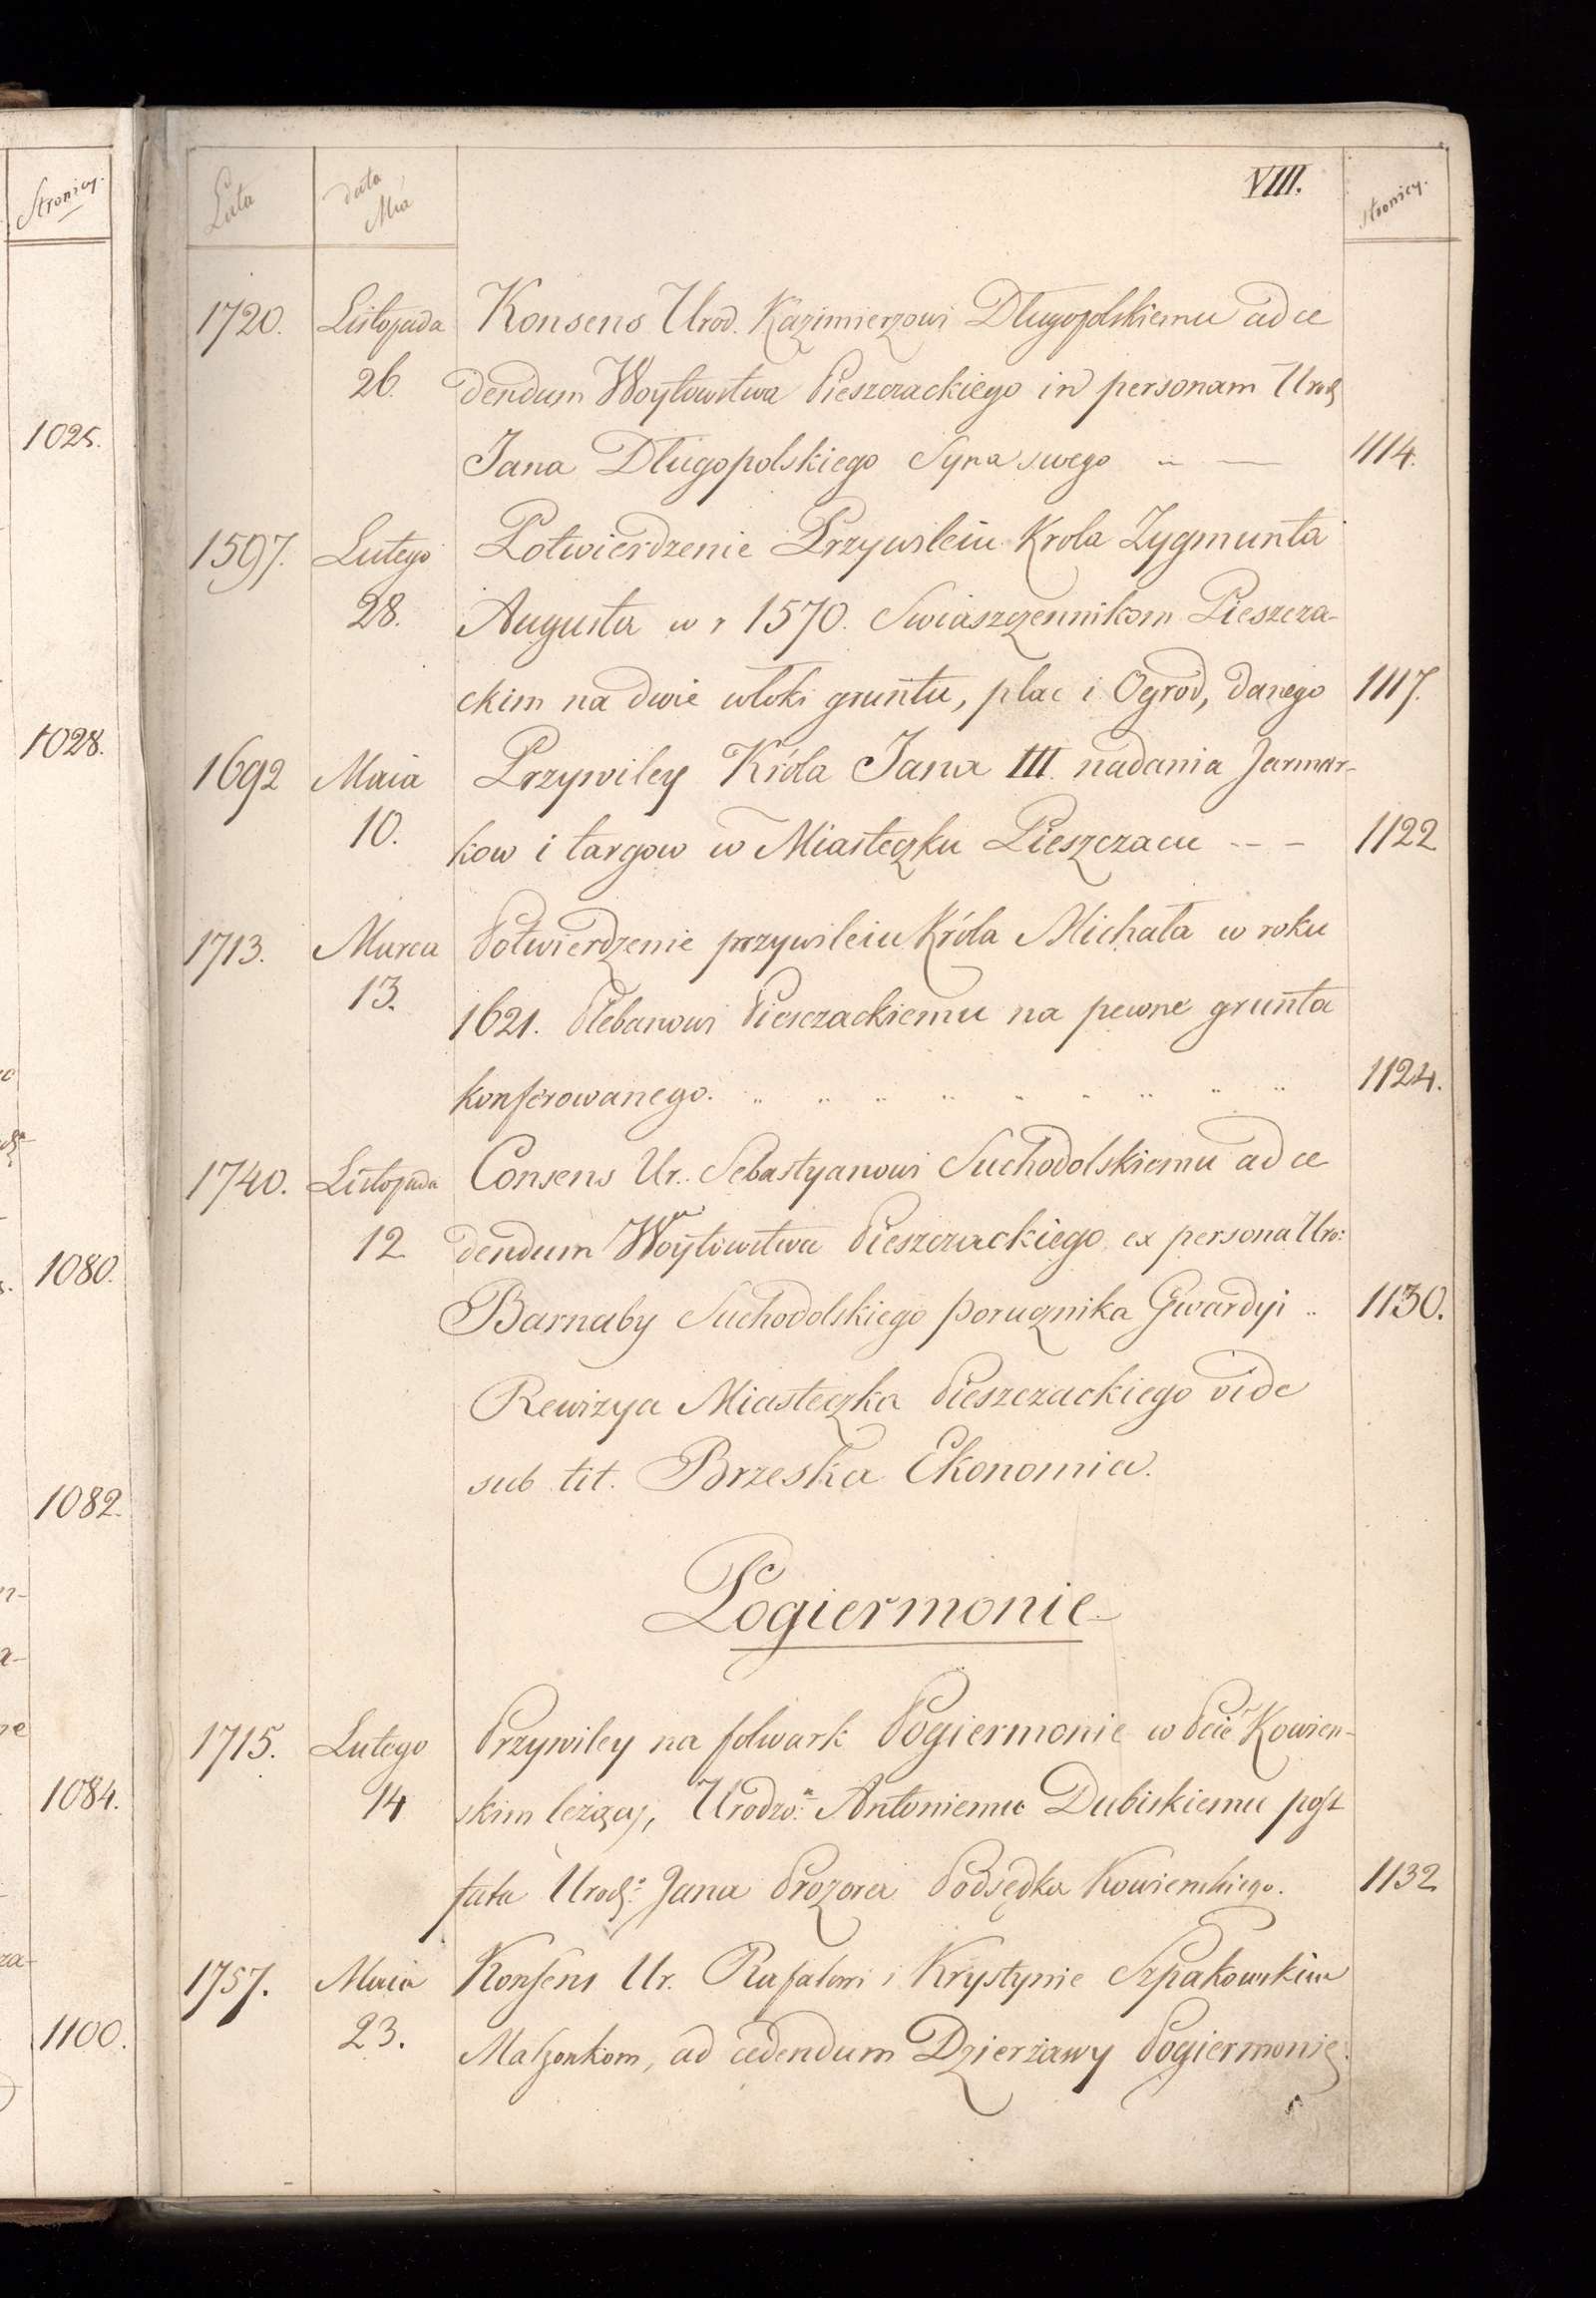 Stronicy.
1025.
1028.
1080.
1082.
1084.
1100.
VIII.
Lata
data
Mca
stronicy.
1720. Listopada Konsens Urod. Kazimierzowi Długopolskiemu ad ce
26. dendum Woytowstwa Pieszczackiego in personam Urodz
Jana Długopolskiego Syna swego 1114.
1597. Lutego Potwierdzenie Przywileiu Krola Zygmunta
28. Augusta w r 1570. Swiaszczennikom Pieszcza-
ckim na dwie włoki gruntu, plac i Ogród, danego 1117.
1692 Maia Przywiley Króla Jana III. nadania Jarmar-
10. kow i targow w Miasteczku Pieszczacu - - - 1122
1713. Marca Potwierdzenie przywileiu Króla Michała w roku
13. 1621. Plebanowi Piesczackiemu na pewne grunta
konferowanego. 1124.
1740. Listopada Consens Ur. Sebastyanowi Suchodolskiemu ad ce
12 dendum Woytowstwa Pieszczackiego ex persona Uro:
Barnaby Suchodolskiego porucznika Gwardyi 1130.
Rewizya Miasteczka Pieszczackiego vide
sub tit. Brzeska Ekonomia.
Pogiermonie
1715. Lutego Przywiley na folwark Pogiermonie w Pcie Kowien-
14 skim leżący, Urodzo: Antoniemu Dubiskiemu post
fata Urodz: Jana Prozora Podsędka Kowienskiego. 1132
1757. Maia Konsens Ur. Rafałowi i Krystynie Szpakowskim
23. Małżonkom, ad cedendum Dzierżawy Pogiermonie